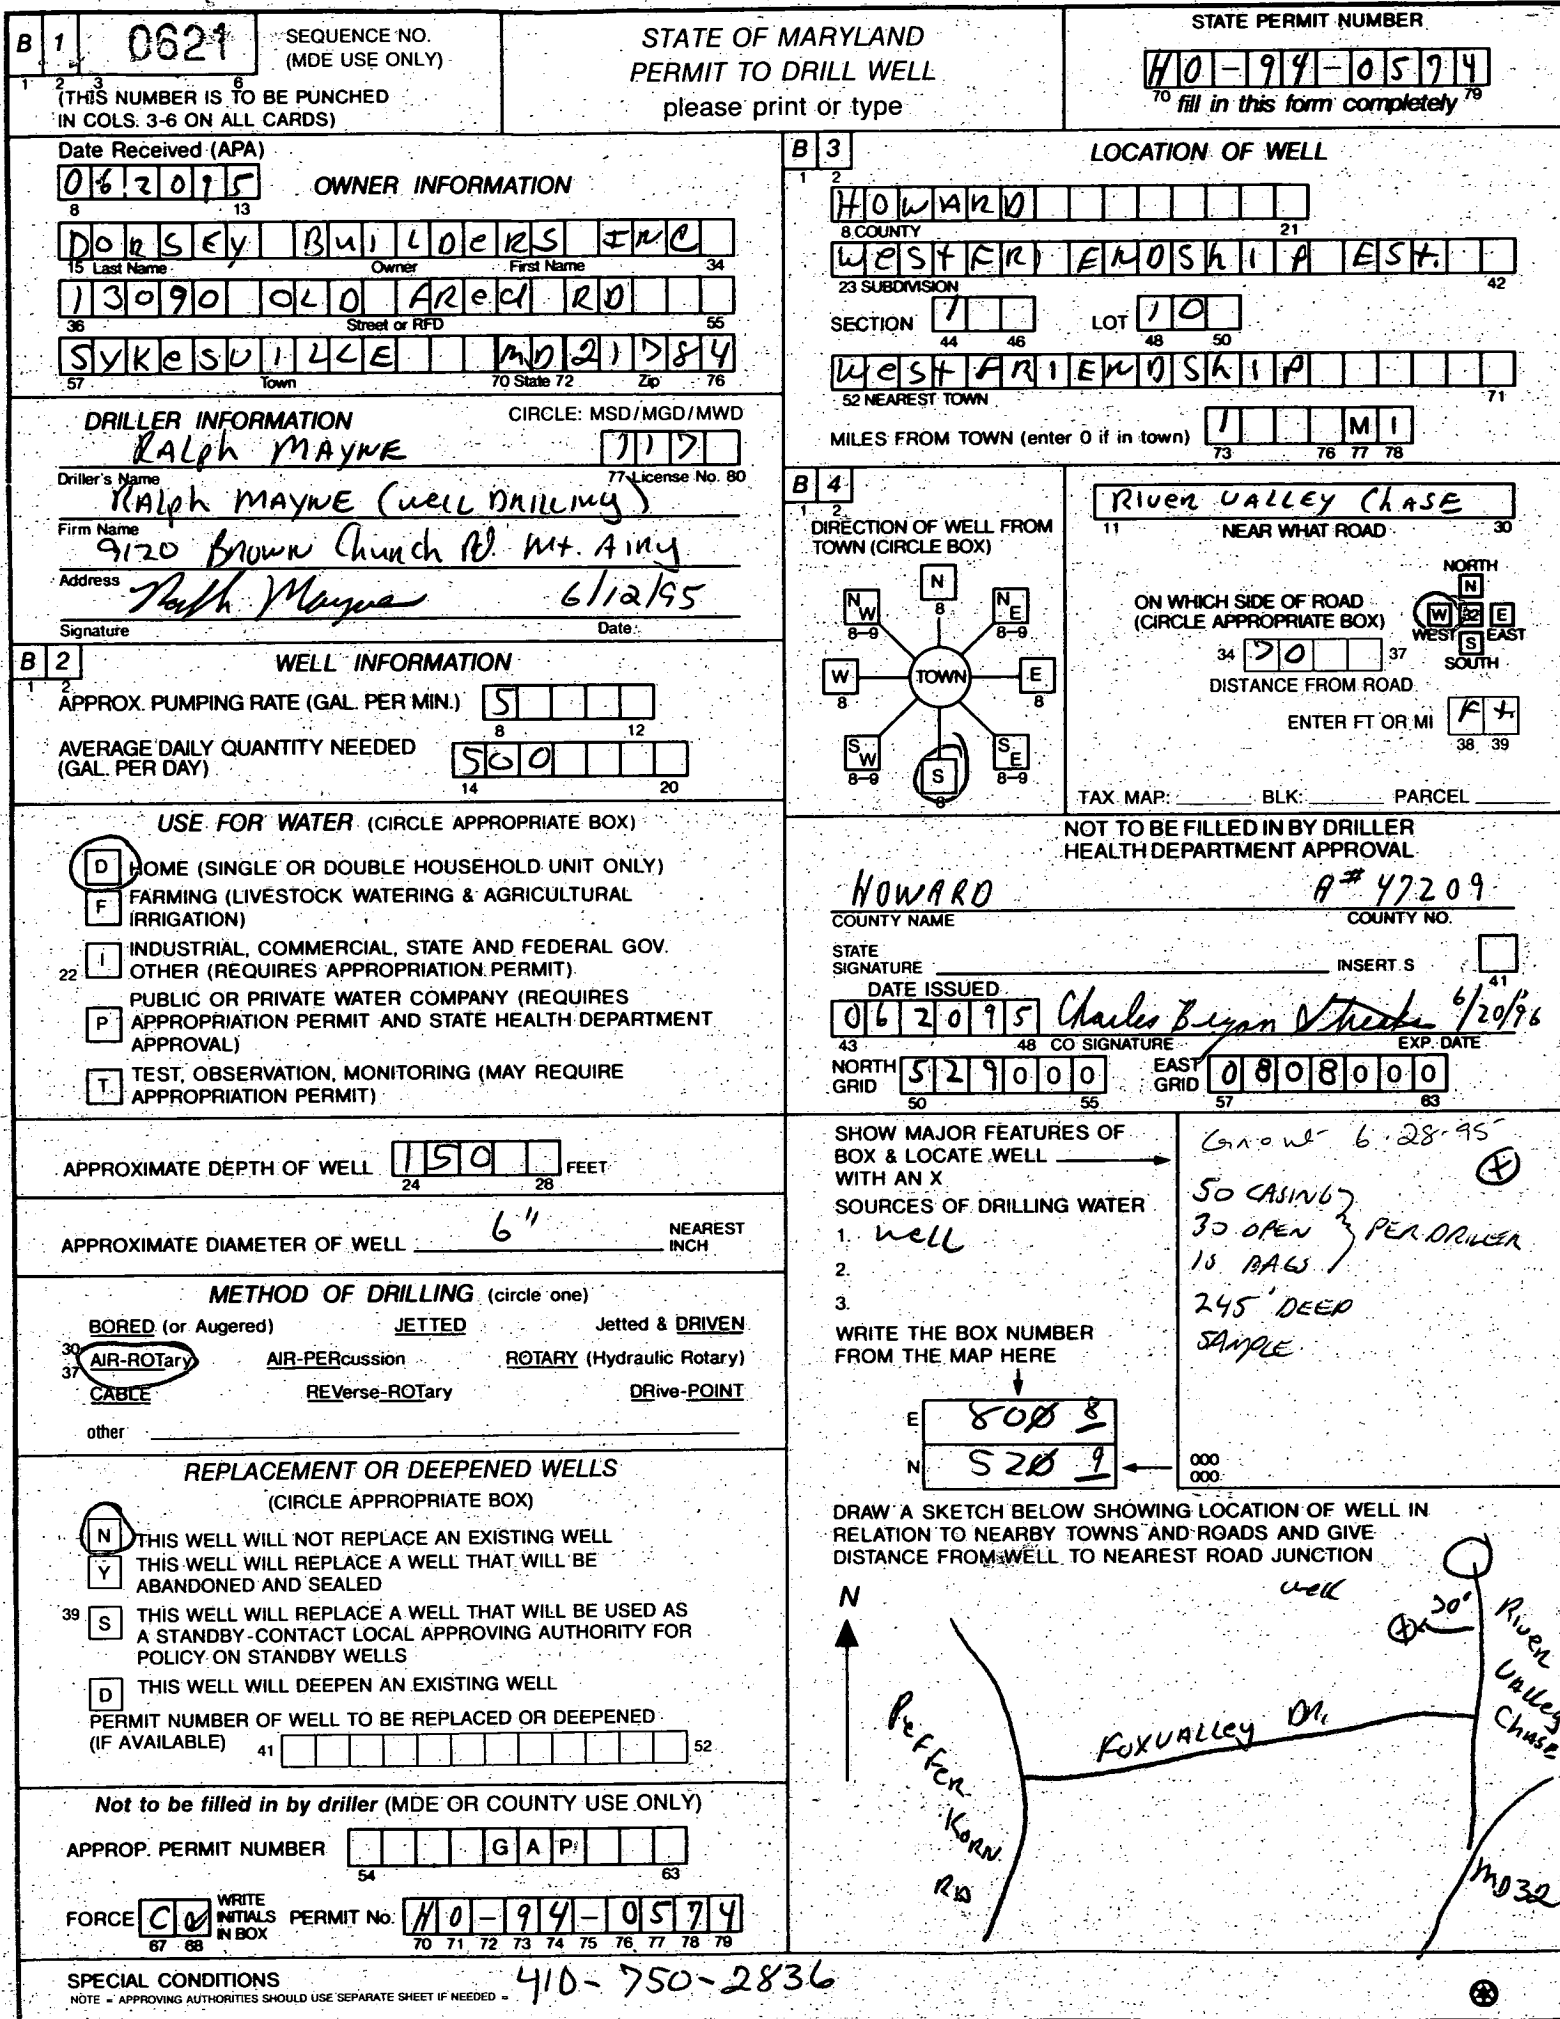 B 1 0621 SEQUENCE NO. (MDE USE ONLY)
1 2 3 6
(THIS NUMBER IS TO BE PUNCHED
IN COLS. 3-6 ON ALL CARDS)
STATE OF MARYLAND
PERMIT TO DRILL WELL
please print or type
STATE PERMIT NUMBER
HO-94-0574
70 fill in this form completely 79
Date Received (APA)
062095 OWNER INFORMATION
8 13
DORSEY BUILDERS INC
15 Last Name Owner First Name 34
13090 OLD
36 Street or RFD 55
SYKESVILLE MD 21784
57 Town 70 State 72 Zip 76
DRILLER INFORMATION CIRCLE: MSD/MGD/MWD
RALPh MAYNE 117
Driller's Name 77 License No. 80
RALPh MAYNE (WELL DRILLING)
Firm Name
9120 Brown Church Rd. Mt. Airy
Address
Ralph Mayne 6/12/95
Signature Date
B 2 WELL INFORMATION
1 2
APPROX. PUMPING RATE (GAL. PER MIN.) 5
8 12
AVERAGE DAILY QUANTITY NEEDED
(GAL. PER DAY) 500
14 20
USE FOR WATER (CIRCLE APPROPRIATE BOX)
D HOME (SINGLE OR DOUBLE HOUSEHOLD UNIT ONLY)
F FARMING (LIVESTOCK WATERING & AGRICULTURAL
IRRIGATION)
I INDUSTRIAL, COMMERCIAL, STATE AND FEDERAL GOV.
22 OTHER (REQUIRES APPROPRIATION PERMIT)
PUBLIC OR PRIVATE WATER COMPANY (REQUIRES
P APPROPRIATION PERMIT AND STATE HEALTH DEPARTMENT
APPROVAL)
T TEST, OBSERVATION, MONITORING (MAY REQUIRE
APPROPRIATION PERMIT)
APPROXIMATE DEPTH OF WELL 150 FEET
24 28
APPROXIMATE DIAMETER OF WELL 6" NEAREST INCH
METHOD OF DRILLING (circle one)
BORED (or Augered) JETTED Jetted & DRIVEN
30 AIR-ROTary AIR-PERcussion ROTARY (Hydraulic Rotary)
37 CABLE REVerse-ROTary DRive-POINT
other
REPLACEMENT OR DEEPENED WELLS
(CIRCLE APPROPRIATE BOX)
N THIS WELL WILL NOT REPLACE AN EXISTING WELL
Y THIS WELL WILL REPLACE A WELL THAT WILL BE
ABANDONED AND SEALED
39 S THIS WELL WILL REPLACE A WELL THAT WILL BE USED AS
A STANDBY-CONTACT LOCAL APPROVING AUTHORITY FOR
POLICY ON STANDBY WELLS
D THIS WELL WILL DEEPEN AN EXISTING WELL
PERMIT NUMBER OF WELL TO BE REPLACED OR DEEPENED
(IF AVAILABLE) 41 52
Not to be filled in by driller (MDE OR COUNTY USE ONLY)
APPROP. PERMIT NUMBER GAP
54 63
FORCE C WRITE INITIALS IN BOX PERMIT No. HO-94-0574
67 68 70 71 72 73 74 75 76 77 78 79
SPECIAL CONDITIONS 410-750-2836
NOTE - APPROVING AUTHORITIES SHOULD USE SEPARATE SHEET IF NEEDED
B 3 LOCATION OF WELL
1 2
HOWARD
8 COUNTY 21
WEST FRIENDSHIP EST.
23 SUBDIVISION 42
SECTION 1 LOT 10
44 46 48 50
WEST FRIENDSHIP
52 NEAREST TOWN 71
MILES FROM TOWN (enter 0 if in town) 1 MI
73 76 77 78
B 4
1 2
DIRECTION OF WELL FROM
TOWN (CIRCLE BOX)
N
8
NW NE
8-9 8-9
W TOWN E
8 8
SW SE
8-9 8-9
S
8
RIVER VALLEY ChASE
11 NEAR WHAT ROAD 30
ON WHICH SIDE OF ROAD
(CIRCLE APPROPRIATE BOX)
NORTH
N
W 32 E
WEST EAST
S
SOUTH
34 70 37
DISTANCE FROM ROAD
ENTER FT OR MI Ft
38 39
TAX MAP: BLK: PARCEL
NOT TO BE FILLED IN BY DRILLER
HEALTH DEPARTMENT APPROVAL
HOWARD A# 47209
COUNTY NAME COUNTY NO.
STATE
SIGNATURE INSERT S
41
DATE ISSUED
062095 Charles Bryan 6/20/96
43 48 CO SIGNATURE EXP. DATE
NORTH GRID 529000 EAST GRID 0808000
50 55 57 63
SHOW MAJOR FEATURES OF
BOX & LOCATE WELL
WITH AN X
SOURCES OF DRILLING WATER
1. well
2.
3.
WRITE THE BOX NUMBER
FROM THE MAP HERE
E 800 8
N 520 9
Grout 6-28-95
50 CASING
30 OPEN PER DRILLER
BAGS
245' DEEP
SAMPLE
000
000
DRAW A SKETCH BELOW SHOWING LOCATION OF WELL IN
RELATION TO NEARBY TOWNS AND ROADS AND GIVE
DISTANCE FROM WELL TO NEAREST ROAD JUNCTION
N
well
70'
River Valley Chase
FOXVALLEY DR.
PFEFFERKORN RD
MD 32